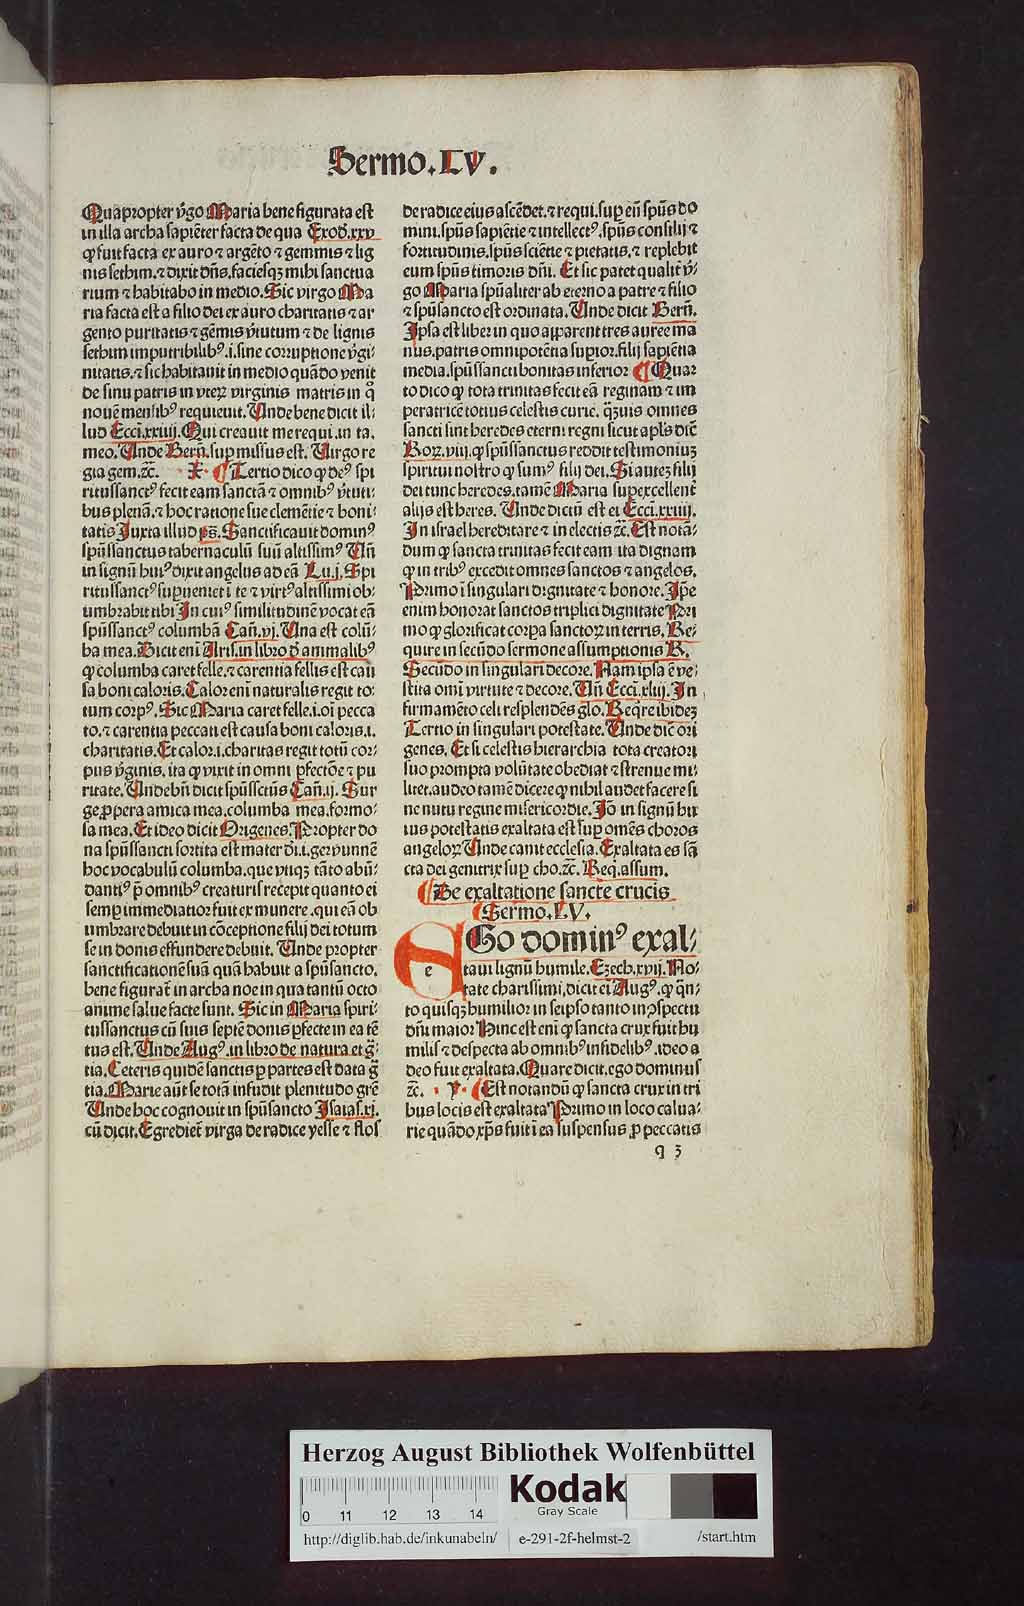 Sermo.LV.
Quapropter v̄go Maria bene figurata est
in illa archa sapiēter facta de qua Exod̄.xxv
ꝙ fuit facta ex auro ⁊ argēto ⁊ gemmis ⁊ lig
nis sethim.⁊ dixit dn̄s.faciesqꝫ mihi sanctua
rium ⁊ habitabo in medio.Sic virgo Ma
ria facta est a filio dei ex auro charitatis ⁊ ar
gento puritatis ⁊ gēmis v̄tutum ⁊ de lignis
sethim imputribilibꝰ.i.sine corruptione v̄gi⸗
nitatis.⁊ sic habitauit in medio quādo venit
de sinu patris in vteꝝ virginis matris in q̊
nouē mensibꝰ requieuit.Unde bene dicit il⸗
lud Ecci.xxiiij.Qui creauit me requi.in ta.
meo.Unde Bern̄.sup missus est.Virgo re
gia gem.ꝛc̄. K. ¶ Tertio dico ꝙ deꝰ spi
ritussanctꝰ fecit eam sanctā ⁊ omnibꝰ v̄tuti⸗
bus plenā.⁊ hoc ratione sue clemētie ⁊ boni⸗
tatis Juxta illud ps̄.Sanctificauit dominꝰ
spūssanctus tabernaculū suū altissimꝰ Un̄
in signū huiꝰ dixit angelus ad eā Lu.j.Spi
ritussanctꝰ suꝑueniet ī te ⁊ virtꝰ altissimi ob⸗
umbrabit tibi In cuiꝰ similitudinē vocat eā
spūssanctꝰ columbā Can̄.vj.Una est colū⸗
ba mea.Dicit eni Aris.in libro d̄ animalibꝰ
ꝙ columba caret felle.⁊ carentia fellis est cau
sa boni caloris.Calor eni naturalis regit to⸗
tum corpꝰ.Sic Maria caret felle.i.oi pecca
to.⁊ carentia peccati est causa boni caloris.i.
charitatis.Et calor.i.charitas regit totū cor⸗
pus v̄ginis.ita ꝙ vixit in omni ꝑfectōe ⁊ pu
ritate.Unde bn̄ dicit spūssctūs Can̄.ij.Sur
ge ꝓpera amica mea.columba mea.formo⸗
sa mea.Et ideo dicit Origenes.Propter do
na spūssancti sortita est mater dn̄i.i.ger̄ punnē
hoc vocabulū columba.que vtiqꝫ tāto abū⸗
dantiꝰ p̄ omnibꝰ creaturis recepit quanto ei
semꝑ immediatior fuit ex munere.qui eā ob
umbrare debuit in cōceptione filij dei totum
se in donis effundere debuit.Unde propter
sanctificationē suā quā habuit a spūsancto.
bene figurat̄ in archa noe in qua tantū octo
anime salue facte sunt.Sic in Maria spiri⸗
tussanctus cū suis septē donis ꝑfecte in ea tē
tus est.Unde Augꝰ.in libro de natura et ḡ⸗
tia.Ceteris quidē sanctis ꝑ partes est data ḡ
tia.Marie aūt se totā infudit plenitudo gr̄e
Unde hoc cognouit in spūsancto Isaias.xi.
cū dicit.Egrediet̄ virga de radice yesse ⁊ flos
de radice eius ascēdet.⁊ requi.suꝑ eū spūs do
mini.spūs sapiētie ⁊ intellectꝰ.spūs consilij ⁊
fortitudinis.spūs sciētie ⁊ pietatis.⁊ replebit
eum spūs timoris dn̄i.Et sic patet qualit̄ v̄⸗
go Maria spūaliter ab eterno a patre ⁊ filio
⁊ spūsancto est ordinata.Unde dicit Bern̄.
Ipsa est liber in quo apparent tres auree ma
nus.patris omnipotētia suꝑior.filij sapiētia
media.spūssancti bonitas inferior ¶ Quar
to dico ꝙ tota trinitas fecit eā reginam ⁊ im
peratricē totius celestis curie.q̄uis omnes
sancti sint heredes eterni regni sicut apl̄s dic̄
Roꝝ.viij.ꝙ spūssanctus reddit testimoniuꝫ
spiritui nostro ꝙ sumꝰ filij dei.Si auteꝫ filij
dei tunc heredes.tamē Maria suꝑexcellent̄
alijs est heres.Unde dictū est ei Ecci.xxiiij.
In israel hereditare ⁊ in electis ꝛc̄.Est notā⸗
dum ꝙ sancta trinitas fecit eam ita dignam
ꝙ in tribꝰ excedit omnes sanctos ⁊ angelos.
Primo ī singulari dignitate ⁊ honore.Ip̄e
enim honorat sanctos triplici dignitate Pri
mo ꝙ glorificat corꝑa sanctoꝝ in terris.Re⸗
quire in secūdo sermone assumptionis B.
Secūdo in singulari decore.Nam ipsa ē ve⸗
stita omī virtute ⁊ decore.Un̄ Ecci.xliij.In
firmamēto celi resplendēs glo.Reqre ibideꝫ
Tertio in singulari potestate.Unde dic̄ ori
genes.Et si celestis hierarchia tota creatori
suo prompta volūtate obediat ⁊ strenue mi⸗
litet.audeo tamē dicere ꝙ nihil audet facere si
ne nutu regine misericordie.Iō in signū hu
ius potestatis exaltata est suꝑ omēs choros
angeloꝝ Unde canit ecclesia.Exaltata es sā
cta dei genitrix suꝑ cho.ꝛc̄.Req̄.assum.
¶ De exaltatione sancte crucis
¶ Sermo.LV.
EGo dominꝰ exal⸗
taui lignū humile.Ezech.xvij.No⸗
tate charissimi,dicit ci Augꝰ.ꝙ q̄n⸗
to quisqꝫ humilior in seipso tanto in ꝯspectu
dn̄i maior Hinc est eni ꝙ sancta crux fuit hu
milis ⁊ despecta ab omnibꝰ infidelibꝰ.ideo a
deo fuit exaltata.Quare dicit.ego dominus
ꝛc̄. V. ¶ Est notandū ꝙ sancta crux in tri
bus locis est exaltata Primo in loco calua⸗
rie quādo xp̄s fuit ī ea suspensus ꝓ peccatis
q 3
Herzog August Bibliothek Wolfenbüttel
0 11 12 13 14
Kodak
Gray Scale
http://diglib.hab.de/inkunabeln/ e-291-2f-helmst-2 /start.htm